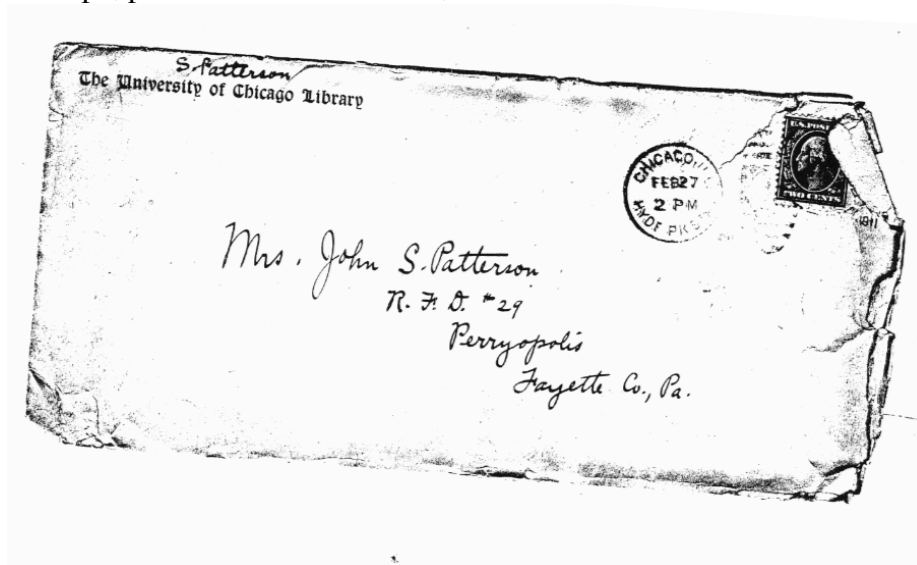 S. Patterson
The University of Chicago Library
CHICAGO, ILL.
FEB 27
2 PM
HYDE PK
U.S. POST
TWO CENTS
1911
Mrs. John S. Patterson
R. F. D. #29
Perryopolis
Fayette Co., Pa.